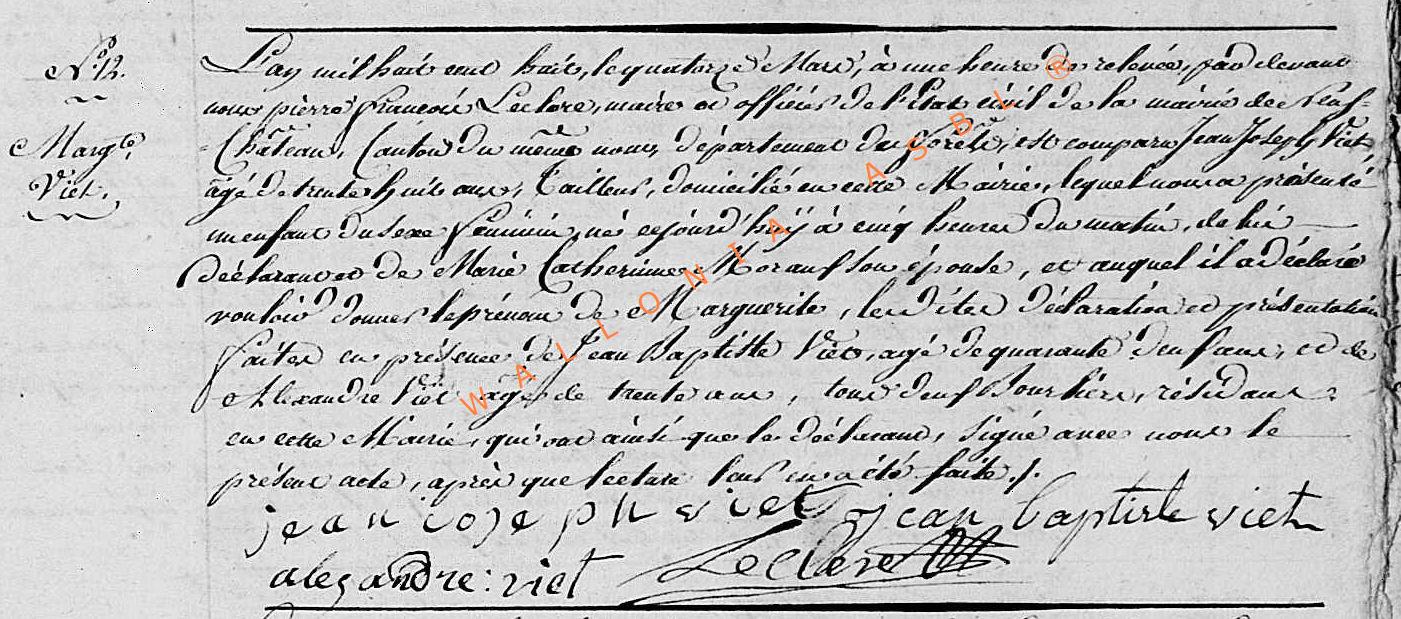 N° 12.
Marg.te
Viet.
L'an mil huit cent huit, le quatorze Mars, à une heure de relevée, par devant
nous pierre françois Leclere, maire et officier de l'Etat civil de la mairie de Neuf-
-Château, Canton du même nom, département des forêts, est comparu Jean Joseph Viet
agé de trente huit ans, Tailleur, domicilié en cette Mairie, lequel nous a présenté
un enfant du sexe féminin, né cejourd'huij à cinq heures du matin, de lui
déclarant et de Marie Catherinne son épouse, et auquel il a déclaré
vouloir donner le prénom de Marguerite, les dites déclaration et présentation
faites en présence de Jean Baptiste Viet, agé de quarante deux ans, et de
Alexandre Viet agé de trente ans, tous deux résidans
en cette Mairie, qui ont ainsi que le déclarant, signé avec nous le
présent acte, après que lecture leur en a été faite ./.
jean joseph viet jean baptiste viet
alexandre : viet Leclere
WALLONIA ASBL ®